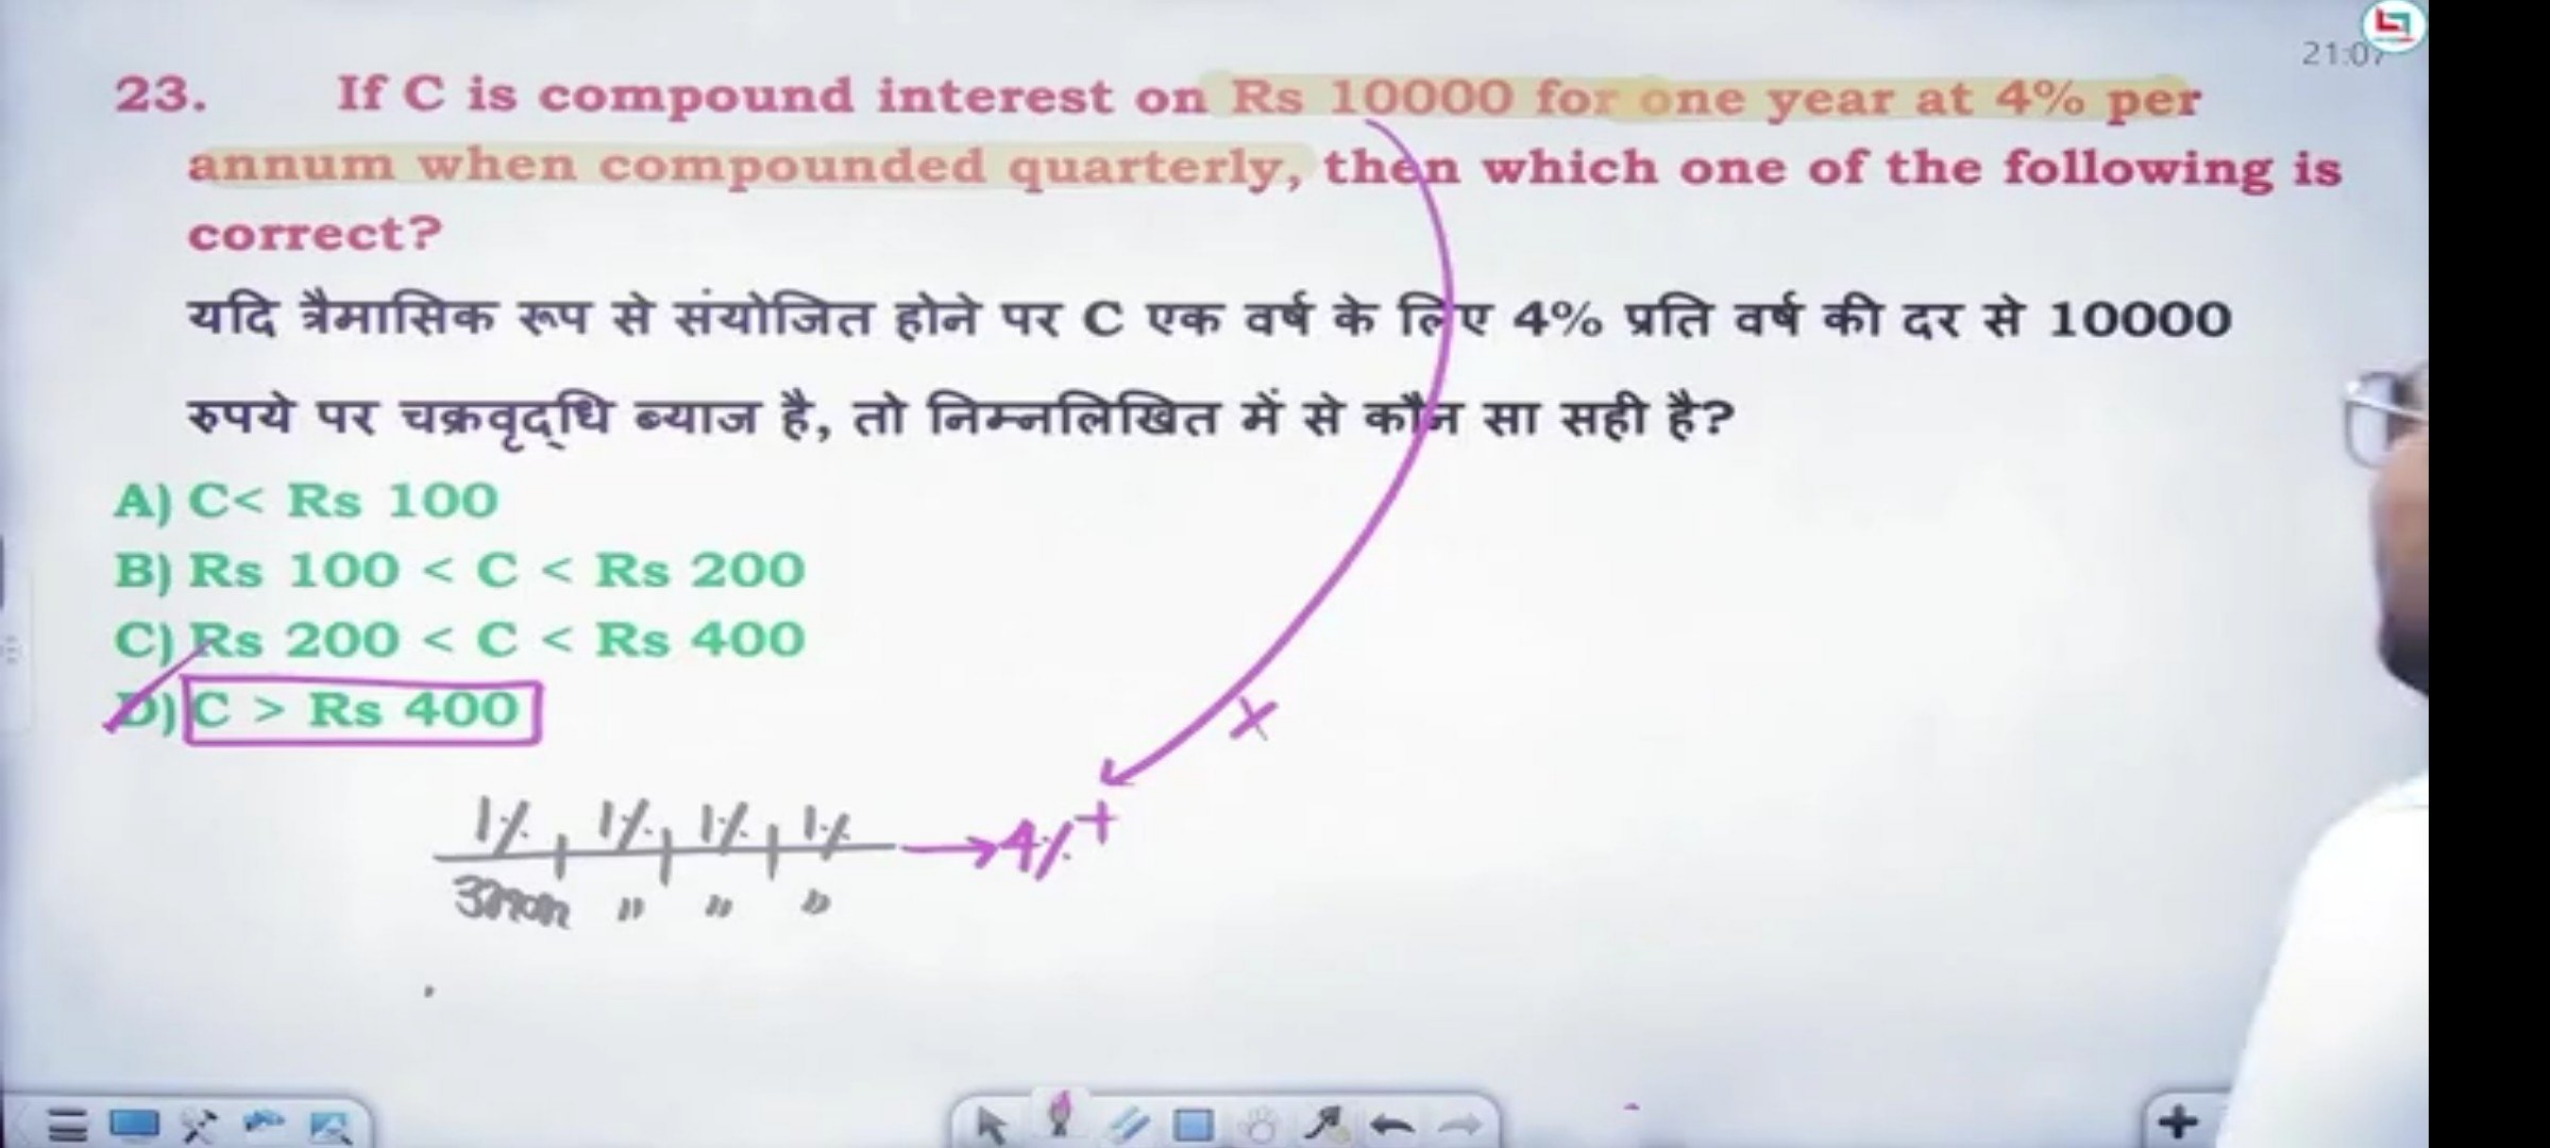 21:07
23. If C is compound interest on Rs 10000 for one year at 4% per
annum when compounded quarterly, then which one of the following is
correct?
यदि त्रैमासिक रूप से संयोजित होने पर C एक वर्ष के लिए 4% प्रति वर्ष की दर से 10000
रुपये पर चक्रवृद्धि ब्याज है, तो निम्नलिखित में से कौन सा सही है?
A) C< Rs 100
B) Rs 100 < C < Rs 200
C) Rs 200 < C < Rs 400
D) C > Rs 400
x
1% 1% 1% 1% → 4%+
3mon " " "